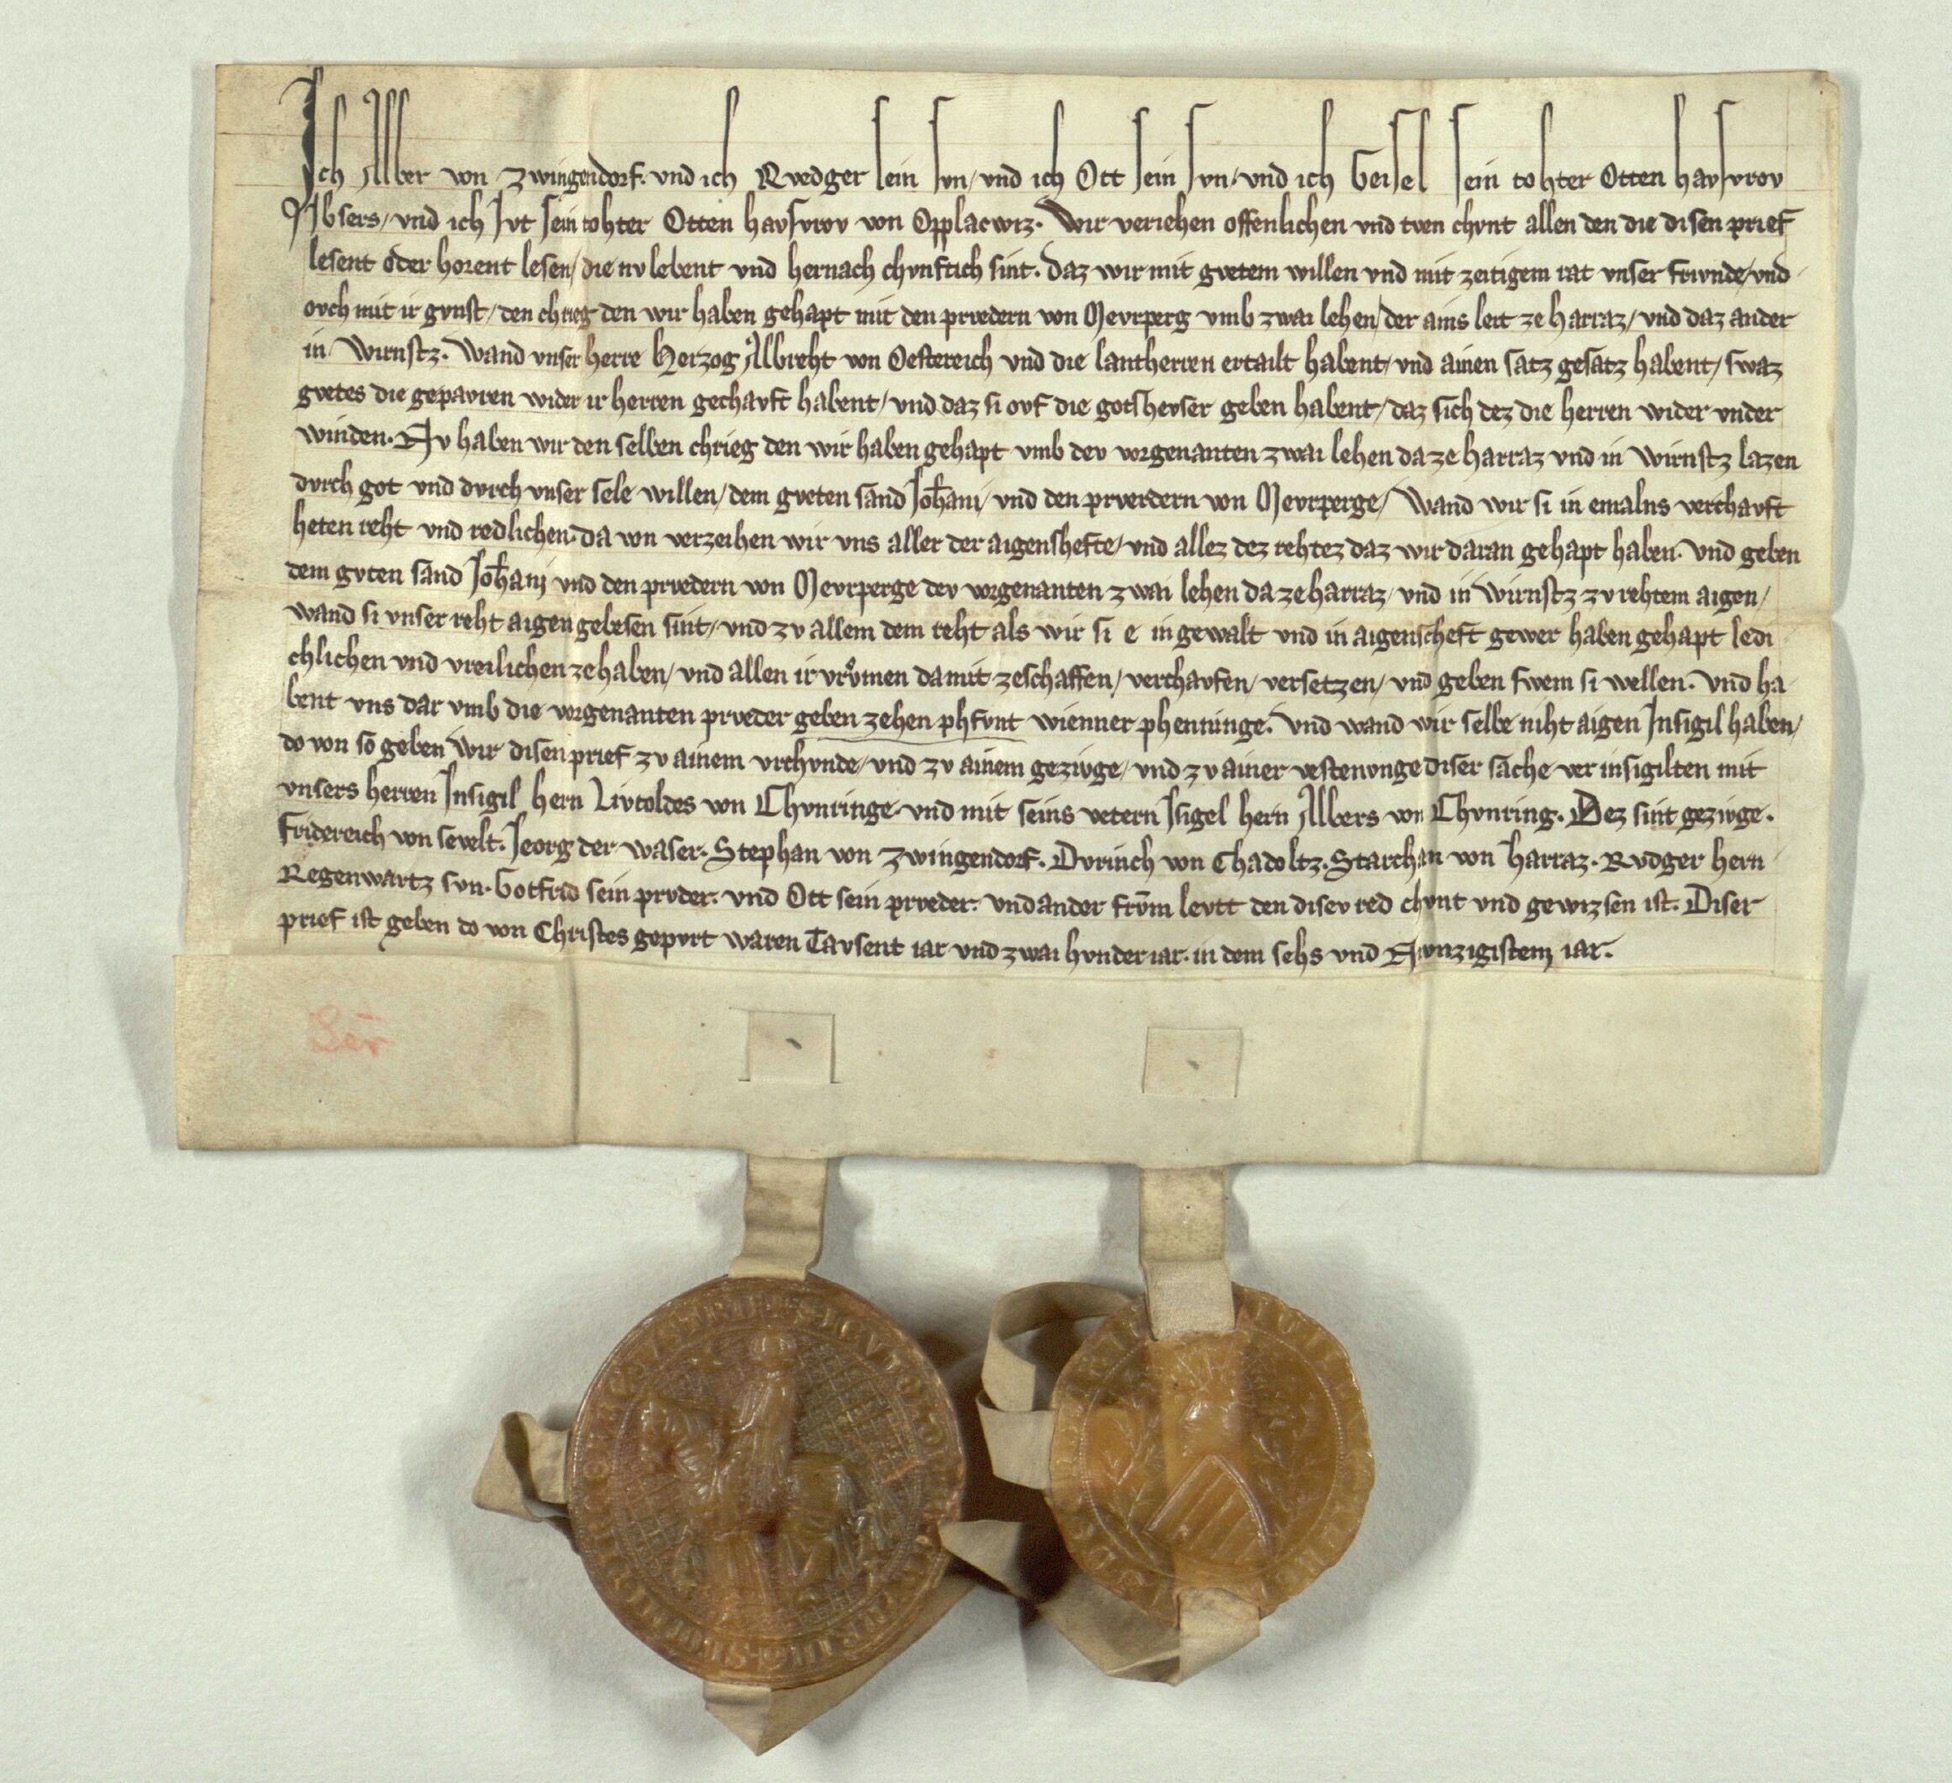 Ich Alber von Zwingendorf. vnd ich Rvedger sein svn, vnd ich Ott sein svn, vnd ich Geisel sein tohter Otten havsvrov
Ibsers, vnd ich Jvt sein tohter Otten havsvrov von Opplacwiz. Wir veriehen offenlichen vnd tven chvnt allen den die disen prief
lesent oder horent lesen, die nv lebent vnd hernach chvnftich sint. daz wir mit gvetem willen vnd mit zeitigem rat vnser frivnde, vnd
ovch mit ir gvnst, den chrieg den wir haben gehapt mit den prvedern von Mevrperg vmb zwai lehen, der ains leit ze harraz, vnd daz ander
in Wirnstz. Wand vnser herre Herzog Albreht von Oestereich vnd die lantherren ertailt habent, vnd ainen satz gesatz habent, swaz
gvetes die gepavren wider ir herren gechavft habent, vnd daz si ovf die gotshevser geben habent, daz sich dez die herren wider vnder
winden. Nv haben wir den selben chrieg den wir haben gehapt vmb dev vorgenanten zwai lehen da ze harraz vnd in Wirnstz lazen
dvrch got vnd dvrch vnser sele willen, dem gveten sand Joh̄ani, vnd den prvedern von Mevrperge, Wand wir si in emalns verchavft
heten reht vnd redlichen. da von verzeihen wir vns aller der aigenshefte, vnd allez dez rehtez daz wir daran gehapt haben. vnd geben
dem gvten sand Joh̄ani vnd den prvedern von Mevrperge dev vorgenanten zwai lehen da ze harraz, vnd in Wirnstz zv rehtem aigen,
wand si vnser reht aigen gebesen sint, vnd zv allem dem reht als wir si e in gewalt vnd in aigenscheft gewer haben gehapt ledi
chlichen vnd vreilichen ze haben, vnd allen ir vrvͦmen da mit ze schaffen, verchavfen, versetzen, vnd geben swem si wellen. vnd ha
bent vns dar vmb die vorgenanten prveder geben zehen phfvnt wienner phenninge. vnd wand wir selbe niht aigen Insigil haben,
do von so geben wir disen prief zv ainem vrchvnde, vnd zv ainem gezivge, vnd zv ainer vestenvnge diser sache ver insigilten mit
vnsers herren Insigil hern Livtoldes von Chvnringe. vnd mit seins vetern Isigel hern Albers von Chvnring. Dez sint gezivge.
Fridereich von sevelt. Jeorg der waser. Stephan von Zwingendorf. Dvrinch von Chadoltz. Starchan von harraz. Rvdger hern
Regenwartz svn. Gotfrid sein prvder. vnd Ott sein prveder. vnd ander frv̄m levtt den disev red chvnt vnd gewizsen ist. Diser
prief ist geben do von Christes gepvrt waren Tavsent iar vnd zwai hvnder iar. in dem sehs vnd Nvnzigistem iar.